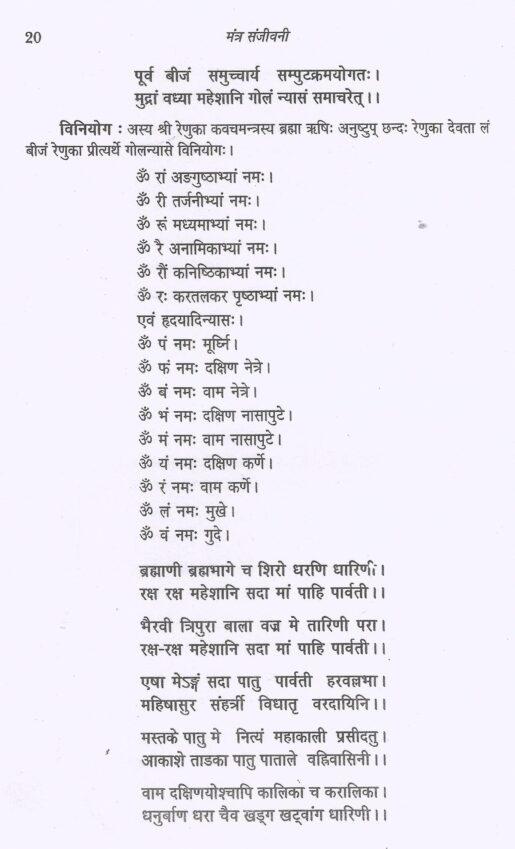 20
मंत्र संजीवनी
पूर्व बीजं समुच्चार्य सम्पुटक्रमयोगतः।
मुद्रां वध्या महेशानि गोलं न्यासं समाचरेत्।।
विनियोग : अस्य श्री रेणुका कवचमन्त्रस्य ब्रह्मा ऋषिः अनुष्टुप् छन्दः रेणुका देवता लं
बीजं रेणुका प्रीत्यर्थे गोलन्यासे विनियोगः।
ॐ रां अङगुष्ठाभ्यां नमः।
ॐ री तर्जनीभ्यां नमः।
ॐ रूं मध्यमाभ्यां नमः।
ॐ रै अनामिकाभ्यां नमः।
ॐ रौं कनिष्ठिकाभ्यां नमः।
ॐ रः करतलकर पृष्ठाभ्यां नमः।
एवं हृदयादिन्यासः।
ॐ पं नमः मूर्ध्नि।
ॐ फं नमः दक्षिण नेत्रे।
ॐ बं नमः वाम नेत्रे।
ॐ भं नमः दक्षिण नासापुटे।
ॐ मं नमः वाम नासापुटे।
ॐ यं नमः दक्षिण कर्णे।
ॐ रं नमः वाम कर्णे।
ॐ लं नमः मुखे।
ॐ वं नमः गुदे।
ब्रह्माणी ब्रह्मभागे च शिरो धरणि धारिणी।
रक्ष रक्ष महेशानि सदा मां पाहि पार्वती।।
भैरवी त्रिपुरा बाला वज्र मे तारिणी परा।
रक्ष-रक्ष महेशानि सदा मां पाहि पार्वती।।
एषा मेऽङ्गं सदा पातु पार्वती हरवल्लभा।
महिषासुर संहर्त्री विधातृ वरदायिनि।।
मस्तके पातु मे नित्यं महाकाली प्रसीदतु।
आकाशे ताडका पातु पाताले वह्निवासिनी।।
वाम दक्षिणयोश्चापि कालिका च करालिका।
धनुर्बाण धरा चैव खड्ग खट्वांग धारिणी।।